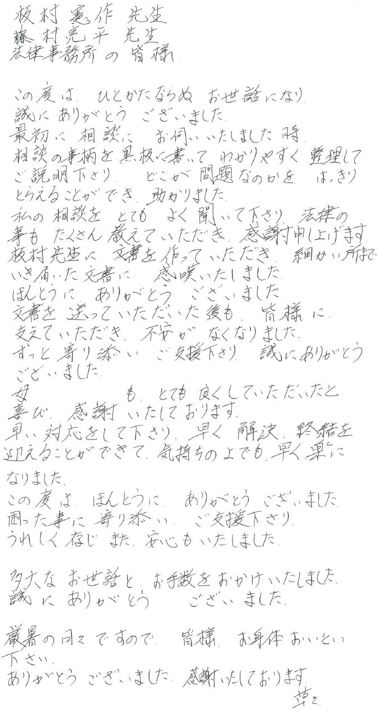 板村憲作 先生
藤村亮平 先生
法律事務所の 皆様

この度は、ひとかたならぬ お世話になり、
誠に ありがとう ございました。
最初に 相談に お伺いいたしました 時、
相談の事柄を 黒板に書いて わかりやすく 整理して
ご説明下さり、どこが 問題なのかを はっきり
とらえることができ、助かりました。
私の相談を とても よく 聞いて下さり、法律の
事も たくさん 教えていただき、感謝申し上げます。
板村先生に 文書を作っていただき、細かい所まで
いき届いた文書に 感嘆いたしました。
ほんとうに ありがとう ございました
文書を 送っていただいた後も、皆様に
支えていただき、不安が なくなりました。
ずっと 寄り添い ご支援下さり、誠にありがとう
ございました。
母 も、とても 良くしていただいたと
喜び、感謝 いたしております。
早い 対応をして下さり、早く 解決、終結を
迎えることができて、気持ちの上でも、早く 楽に
なりました。
この度は、ほんとうに ありがとう ございました。
困った事に 寄り添い、ご支援下さり、
うれしく存じ、また、安心も いたしました。

多大な お世話と、お手数を おかけいたしました。
誠に ありがとう ございました。

厳暑の日々ですので、皆様、お身体おいとい
下さい。
ありがとう ございました。感謝いたしております。
草々